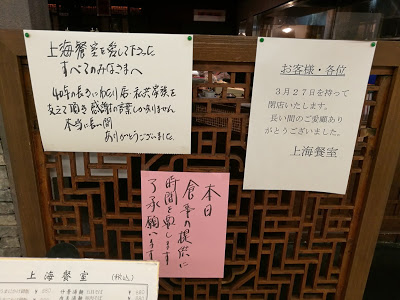 上海餐室を愛して下さった
すべてのみなさまへ
40年の長きにわたり店・私共家族を
支えて頂き感謝の言葉しかありません
本当に長い間
ありがとうございました。
お客様・各位
3月27日を持って
閉店いたします。
長い間のご愛顧あり
がとうございました。
上海餐室
本日
食事の提供に
時間を要します
了承願います
上海餐室 (税込)